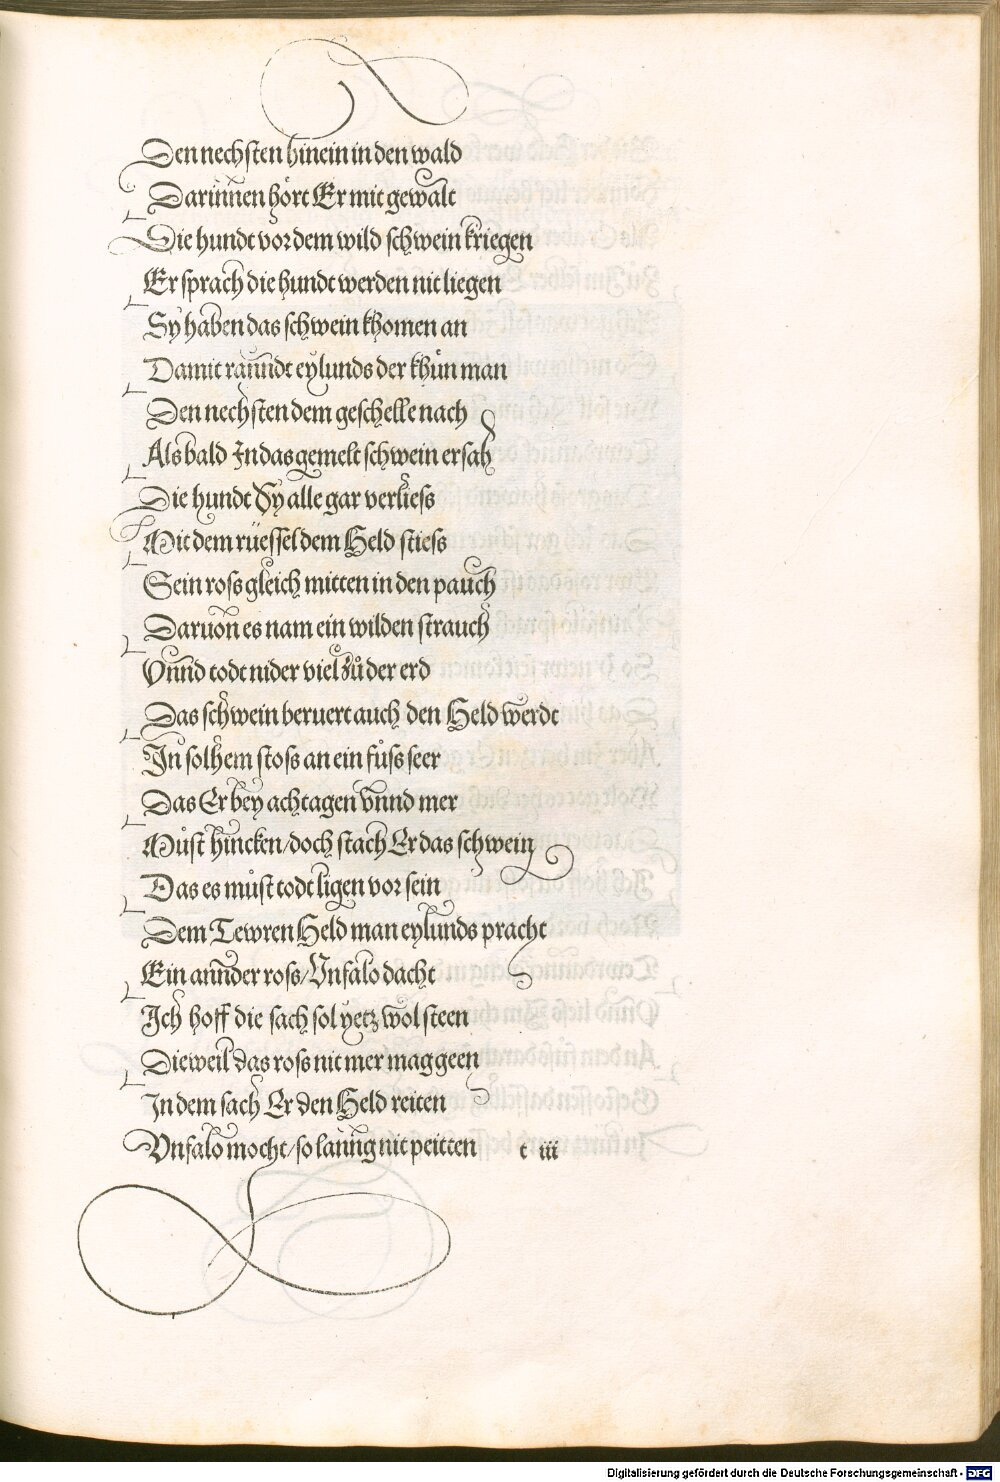 Den nechsten hinein in den wald
Darinnen hört Er mit gewalt
Die hundt vor dem wild schwein kriegen
Er sprach die hundt werden nit liegen
Sy haben das schwein khomen an
Damit ranndt eylunds der khün man
Den nechsten dem geschelle nach
Als bald In das gemelt schwein ersah
Die hundt Sy alle gar verliess
Mit dem rüessel dem Held stiess
Sein ross gleich mitten in den pauch
Daruon es nam ein wilden strauch
Vnnd todt nider viel zů der erd
Das schwein beruert auch den Held werdt
In solhem stoss an ein fůss seer
Das Er bey achtagen vnnd mer
Můst hincken/doch stach Er das schwein
Das es můst todt ligen vor sein
Dem Tewren Held man eylunds pracht
Ein annder ross/Vnfalo dacht
Ich hoff die sach sol yetz wol steen
Dieweil das ross nit mer mag geen
In dem sach Er den Held reiten
Vnfalo mocht/so lanng nit peitten t iii
Digitalisierung gefördert durch die Deutsche Forschungsgemeinschaft - DFG